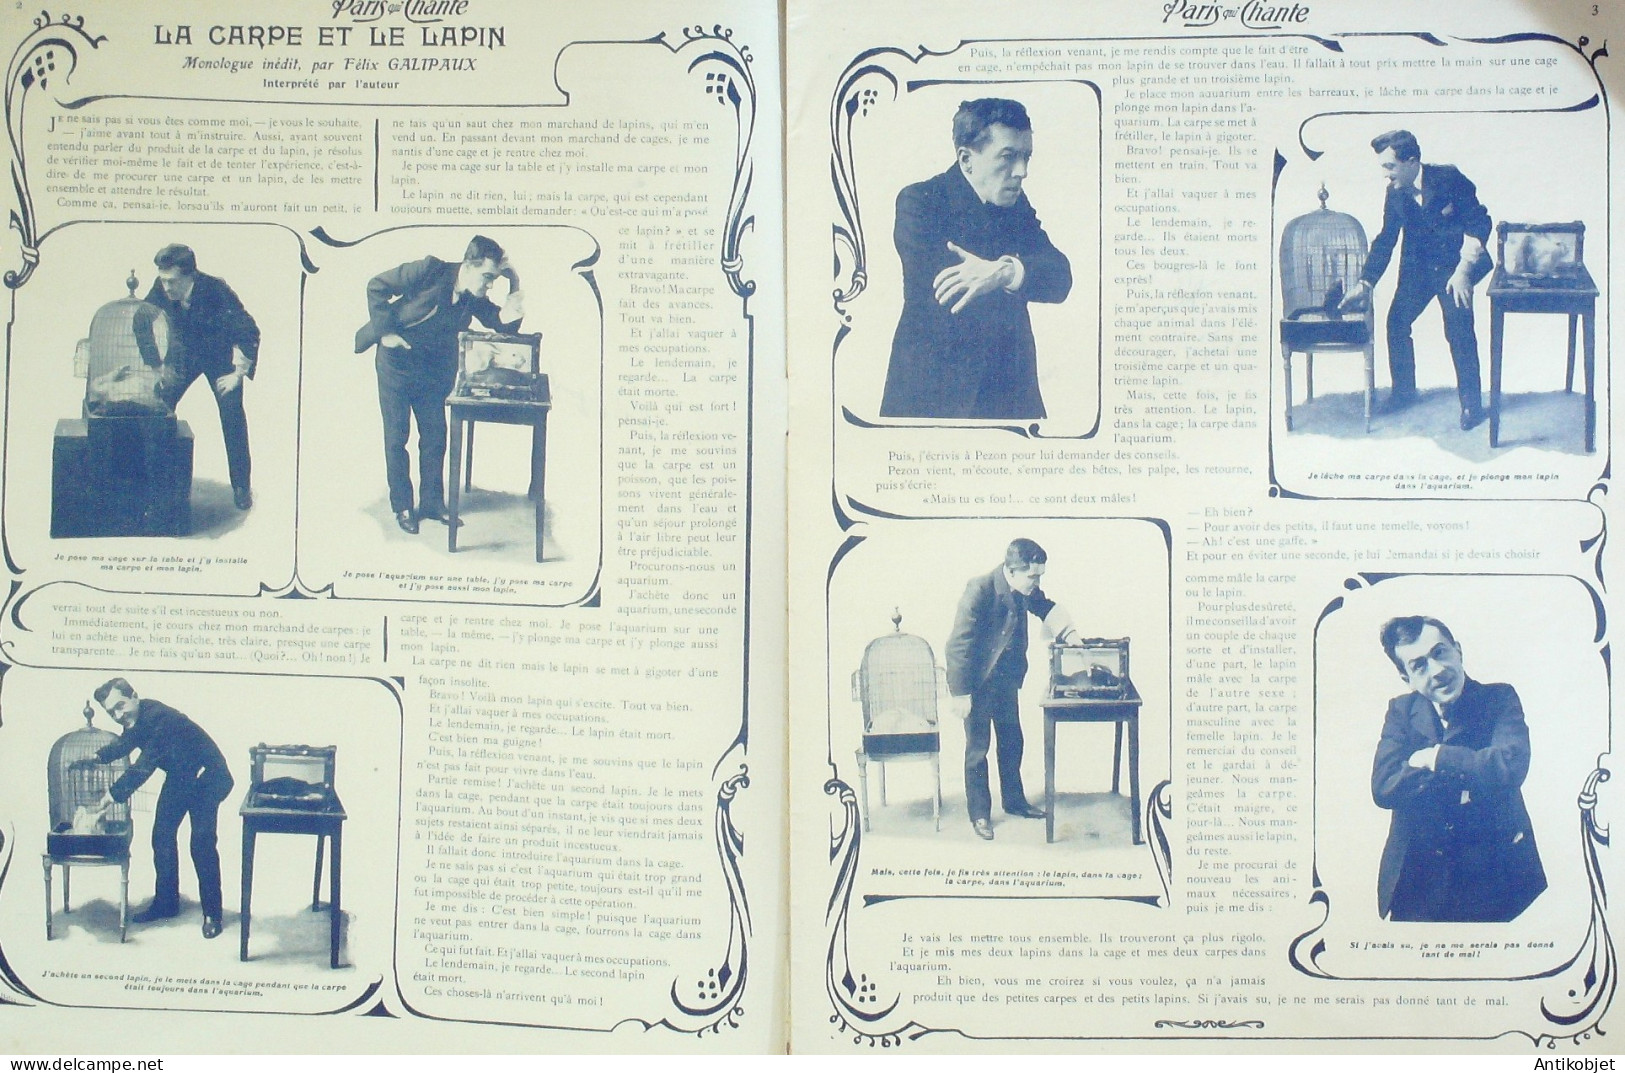 2
Paris qui Chante
LA CARPE ET LE LAPIN
Monologue inédit, par Félix GALIPAUX
Interprété par l'auteur
JE ne sais pas si vous êtes comme moi, — je vous le souhaite,
— j'aime avant tout à m'instruire. Aussi, ayant souvent
entendu parler du produit de la carpe et du lapin, je résolus
de vérifier moi-même le fait et de tenter l'expérience, c'est-à-
dire de me procurer une carpe et un lapin, de les mettre
ensemble et attendre le résultat.
Comme ça, pensai-je, lorsqu'ils m'auront fait un petit, je
verrai tout de suite s'il est incestueux ou non.
Immédiatement, je cours chez mon marchand de carpes : je
lui en achète une, bien fraîche, très claire, presque une carpe
transparente... Je ne fais qu'un saut... (Quoi?... Oh! non!) Je
ne fais qu'un saut chez mon marchand de lapins, qui m'en
vend un. En passant devant mon marchand de cages, je me
nantis d'une cage et je rentre chez moi.
Je pose ma cage sur la table et j'y installe ma carpe et mon
lapin.
Le lapin ne dit rien, lui ; mais la carpe, qui est cependant
toujours muette, semblait demander : « Qu'est-ce qui m'a posé
ce lapin? » et se
mit à frétiller
d'une manière
extravagante.
Bravo! Ma carpe
fait des avances.
Tout va bien.
Et j'allai vaquer à
mes occupations.
Le lendemain, je
regarde... La carpe
était morte.
Voilà qui est fort!
pensai-je.
Puis, la réflexion ve-
nant, je me souvins
que la carpe est un
poisson, que les pois-
sons vivent générale-
ment dans l'eau et
qu'un séjour prolongé
à l'air libre peut leur
être préjudiciable.
Procurons-nous un
aquarium.
J'achète donc un
aquarium, une seconde
carpe et je rentre chez moi. Je pose l'aquarium sur une
table, — la même, — j'y plonge ma carpe et j'y plonge aussi
mon lapin.
La carpe ne dit rien mais le lapin se met à gigoter d'une
façon insolite.
Bravo! Voilà mon lapin qui s'excite. Tout va bien.
Et j'allai vaquer à mes occupations.
Le lendemain, je regarde... Le lapin était mort.
C'est bien ma guigne!
Puis, la réflexion venant, je me souvins que le lapin
n'est pas fait pour vivre dans l'eau.
Partie remise! J'achète un second lapin. Je le mets
dans la cage, pendant que la carpe était toujours dans
l'aquarium. Au bout d'un instant, je vis que si mes deux
sujets restaient ainsi séparés, il ne leur viendrait jamais
à l'idée de faire un produit incestueux.
Il fallait donc introduire l'aquarium dans la cage.
Je ne sais pas si c'est l'aquarium qui était trop grand
ou la cage qui était trop petite, toujours est-il qu'il me
fut impossible de procéder à cette opération.
Je me dis : C'est bien simple! puisque l'aquarium
ne veut pas entrer dans la cage, fourrons la cage dans
l'aquarium.
Ce qui fut fait. Et j'allai vaquer à mes occupations.
Le lendemain, je regarde... Le second lapin
était mort.
Ces choses-là n'arrivent qu'à moi!
Je pose ma cage sur la table et j'y installe
ma carpe et mon lapin.
Je pose l'aquarium sur une table, j'y pose ma carpe
et j'y pose aussi mon lapin.
J'achète un second lapin, je le mets dans la cage pendant que la carpe
était toujours dans l'aquarium.
Paris qui Chante
3
Puis, la réflexion venant, je me rendis compte que le fait d'être
en cage, n'empêchait pas mon lapin de se trouver dans l'eau. Il fallait à tout prix mettre la main sur une cage
plus grande et un troisième lapin.
Je place mon aquarium entre les barreaux, je lâche ma carpe dans la cage et je
plonge mon lapin dans l'a-
quarium. La carpe se met à
frétiller, le lapin à gigoter.
Bravo! pensai-je. Ils se
mettent en train. Tout va
bien.
Et j'allai vaquer à mes
occupations.
Le lendemain, je re-
garde... Ils étaient morts
tous les deux.
Ces bougres-là le font
exprès!
Puis, la réflexion venant,
je m'aperçus que j'avais mis
chaque animal dans l'élé-
ment contraire. Sans me
décourager, j'achetai une
troisième carpe et un qua-
trième lapin.
Mais, cette fois, je fis
très attention. Le lapin,
dans la cage ; la carpe dans
l'aquarium.
Puis, j'écrivis à Pezon pour lui demander des conseils.
Pezon vient, m'écoute, s'empare des bêtes, les palpe, les retourne,
puis s'écrie :
« Mais tu es fou!... ce sont deux mâles!
Je lâche ma carpe dans la cage, et je plonge mon lapin
dans l'aquarium.
— Eh bien?
— Pour avoir des petits, il faut une femelle, voyons!
— Ah! c'est une gaffe. »
Et pour en éviter une seconde, je lui demandai si je devais choisir
comme mâle la carpe
ou le lapin.
Pour plus de sûreté,
il me conseilla d'avoir
un couple de chaque
sorte et d'installer,
d'une part, le lapin
mâle avec la carpe
de l'autre sexe ;
d'autre part, la carpe
masculine avec la
femelle lapin. Je le
remerciai du conseil
et le gardai à dé-
jeuner. Nous man-
geâmes la carpe.
C'était maigre, ce
jour-là... Nous man-
geâmes aussi le lapin,
du reste.
Je me procurai de
nouveau les ani-
maux nécessaires,
puis je me dis :
Mais, cette fois, je fis très attention : le lapin, dans la cage ;
la carpe, dans l'aquarium.
Si j'avais su, je ne me serais pas donné
tant de mal!
Je vais les mettre tous ensemble. Ils trouveront ça plus rigolo.
Et je mis mes deux lapins dans la cage et mes deux carpes dans
l'aquarium.
Eh bien, vous me croirez si vous voulez, ça n'a jamais
produit que des petites carpes et des petits lapins. Si j'avais su, je ne me serais pas donné tant de mal.
Antikobjet